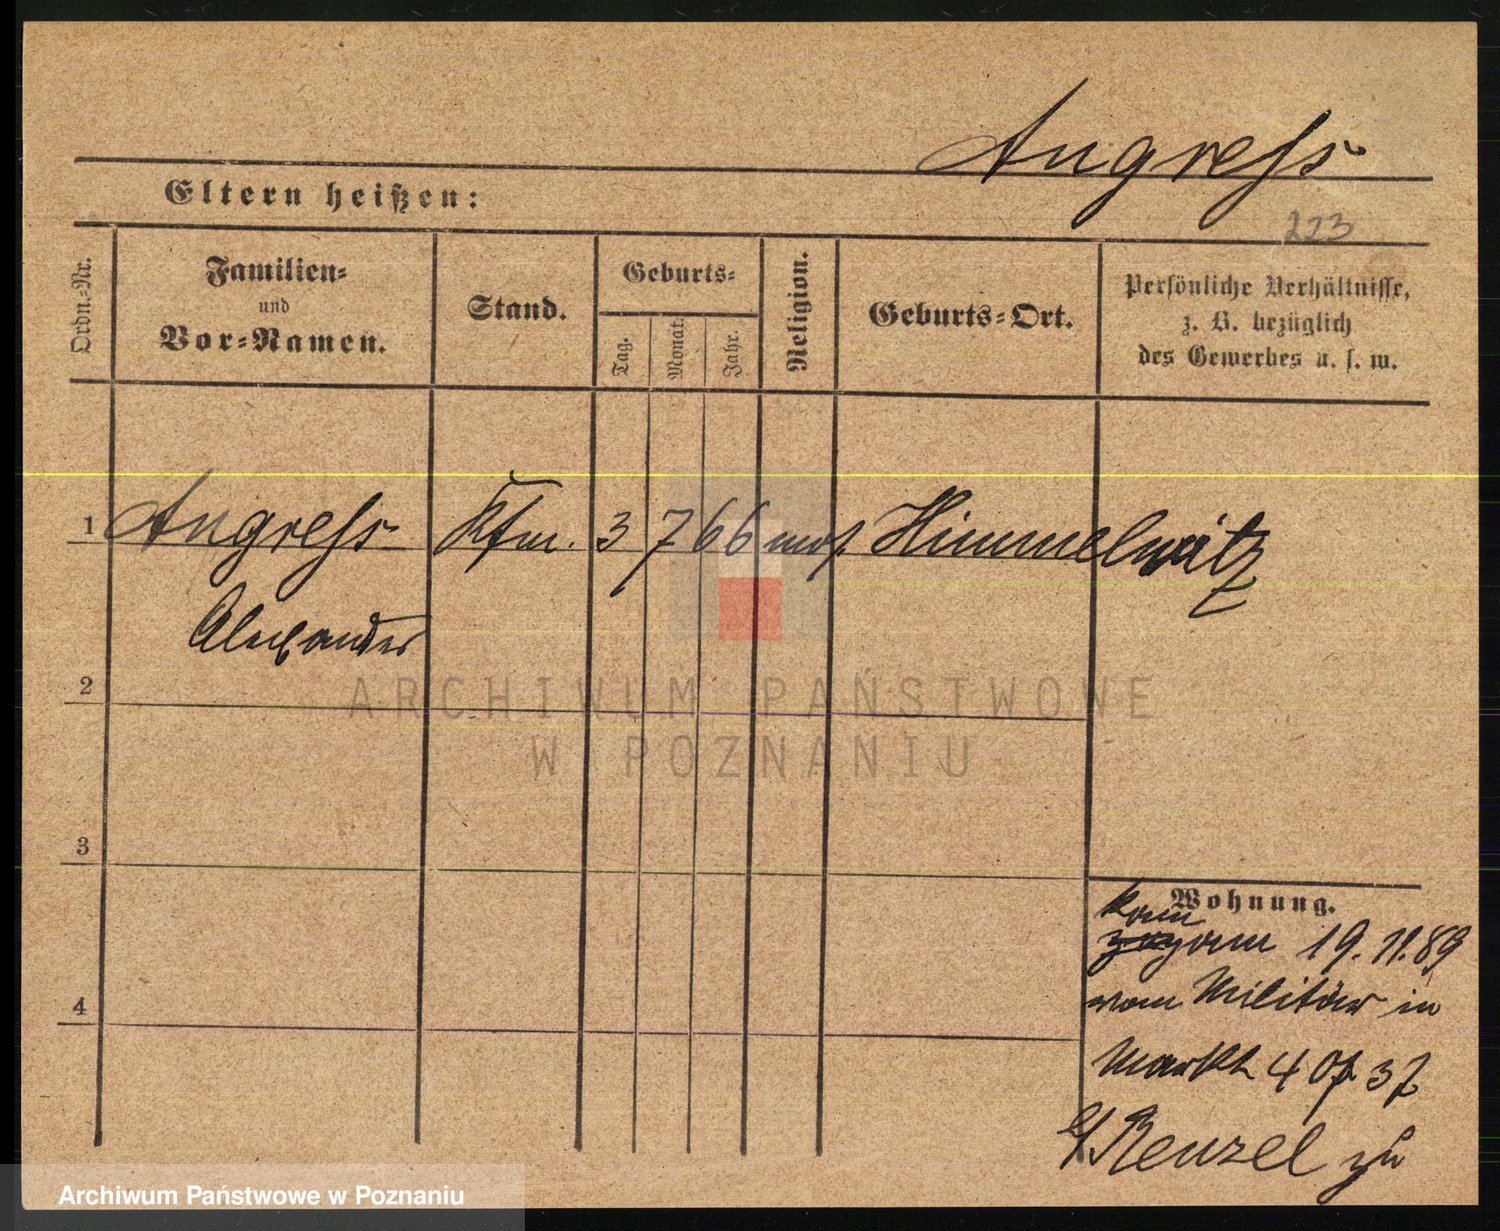 Angress
Eltern heißen:
223
Ordn.-Nr.
Familien-
und
Vor-Namen.
Stand.
Geburts-
Tag.
Monat.
Jahr.
Religion.
Geburts-Ort.
Persönliche Verhältnisse,
z. B. bezüglich
des Gewerbes u. s. w.
1 Angress Kfm. 3 7 66 mos. Himmelwitz
Alexander
2
3
4
ARCHIWUM PAŃSTWOWE
W POZNANIU
Wohnung.
kam
19.11.89
vom Militär in
Markt 4
Renzel zu
Archiwum Państwowe w Poznaniu